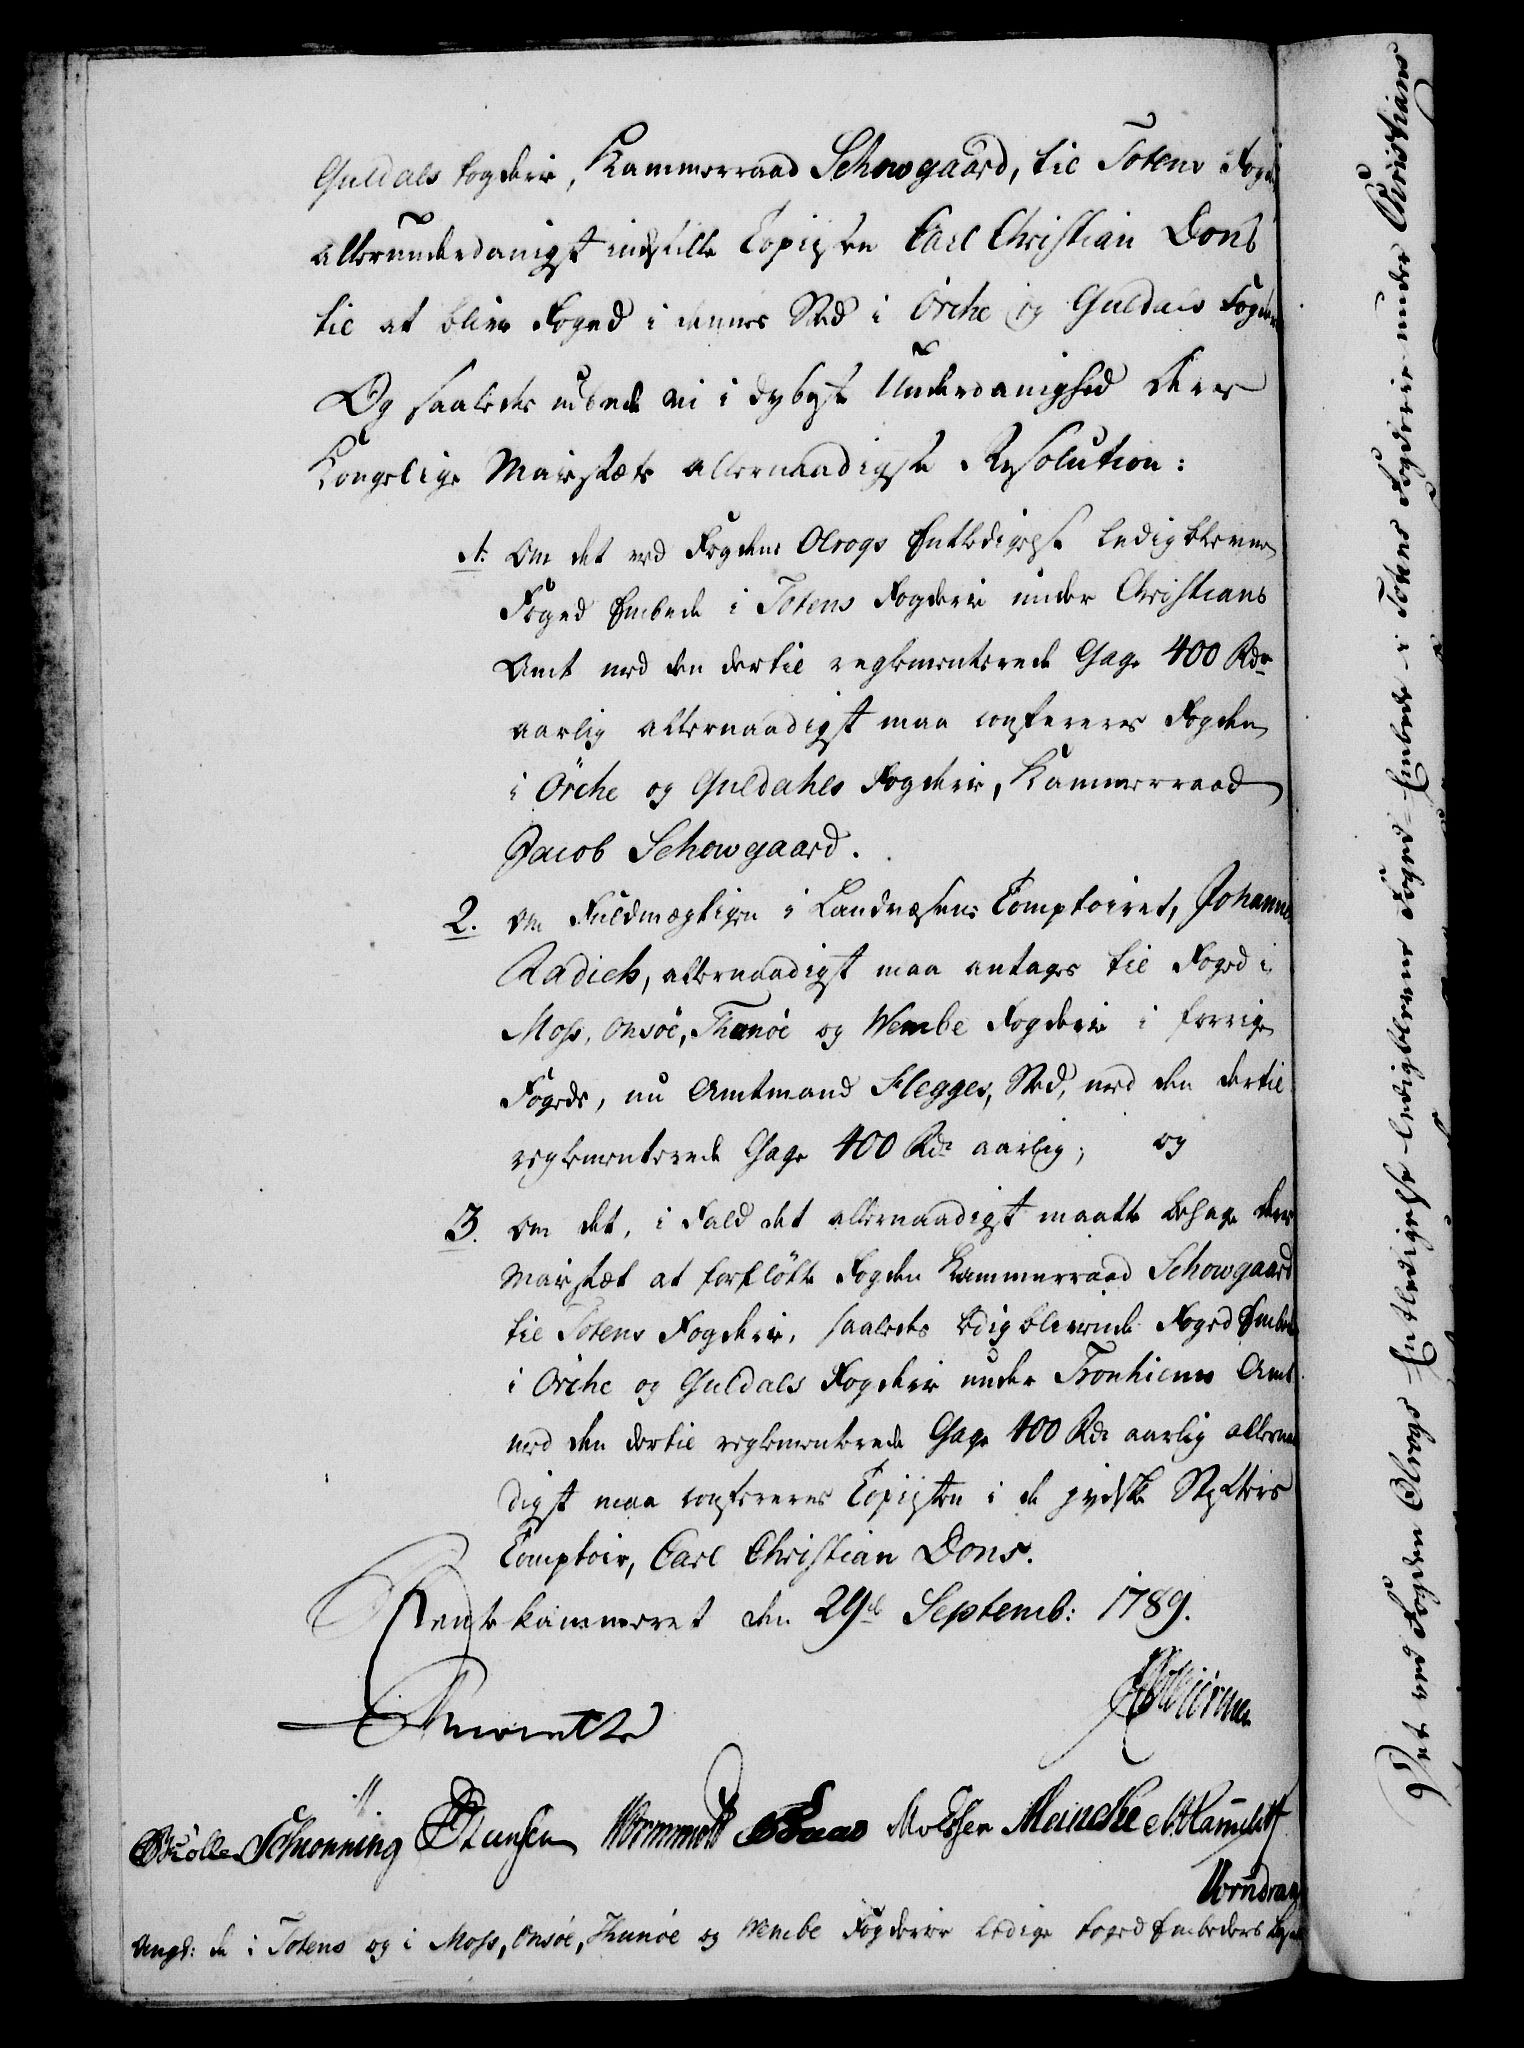 Guldals Fogderie, Kammerraad Schowgaard, til Totens Fogd
allerunderdanigst indstille Copiisten Carl Christian Dons
til at blive Foged i dennes Sted i Örche og Guldals Fogderie
Og saaledes udbede vi i dybeste Underdanighed Deres
Kongelige Majestæts allernaadigste Resolution:
1. Om det ved Fogden Olrogs Entledigelse ledigblevne
Foged Embede i Totens Fogderie under Christians
Amt med den dertil reglementerede Gage 400 Rdr
aarlig allernaadigst maa confereres Fogden
i Örche og Guldahls Fogderie, Kammerraad
Jacob Schowgaard.
2. Om Fuldmægtigen i Landvæsens Comptoiret, Johannes
Radich, allernaadigst maa antages til Foged i
Moss, Onsöe, Thunöe og Wembe Fogderie i forrige
Fogeds, nu Amtmand Flegges, Sted, med den dertil
reglementerede Gage 400 Rdr aarlig; og
3. Om det, i Fald det allernaadigst maatte behage Deres
Majestæt at forfløtte Fogden Kammerraad Schowgaard
til Totens Fogderie, saaledes ledigblevende Foged Embede
i Örche og Guldals Fogderie under Tronhiems Amt
med den dertil reglementerede Gage 400 Rdr aarlig allernaa
digst maa confereres Copiisten i de jydske Stifters
Comptoir, Carl Christian Dons.
Rentekammeret den 29de Septemb: 1789.
Schionning Wormwold Moldsen Meincke
Angl: de i Totens og i Moss, Onsöe, Thunöe og Wembe Fogderier ledige Foged Embeders
Det ved Fogden Olrogs Entledigelse ledigblevne Foged-Embede i Totens Fogderie under Christians